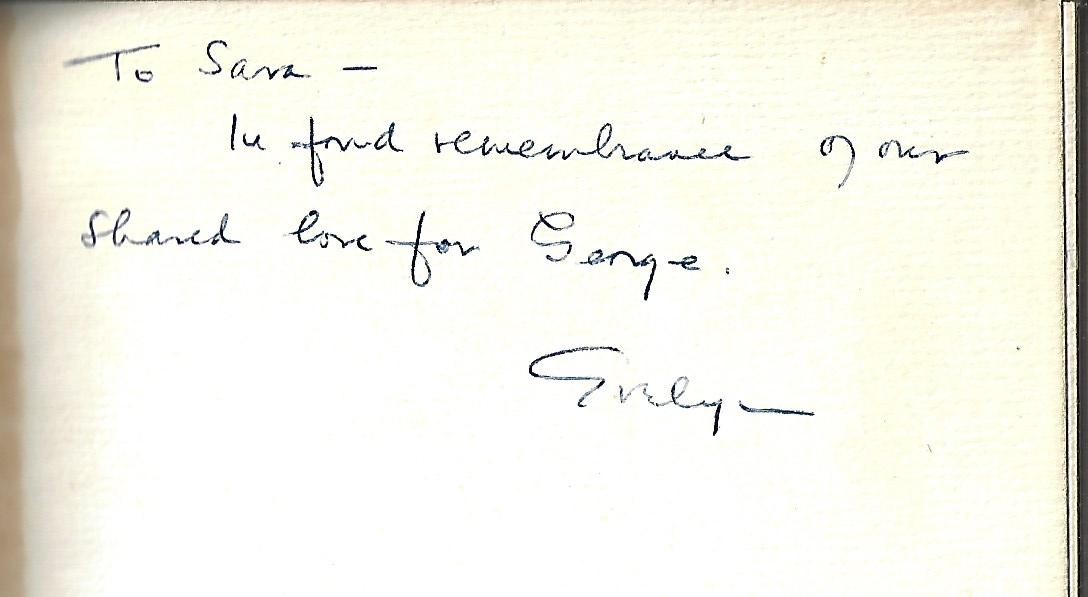 To Sara —
In fond remembrance of our
shared love for George.
Evelyn